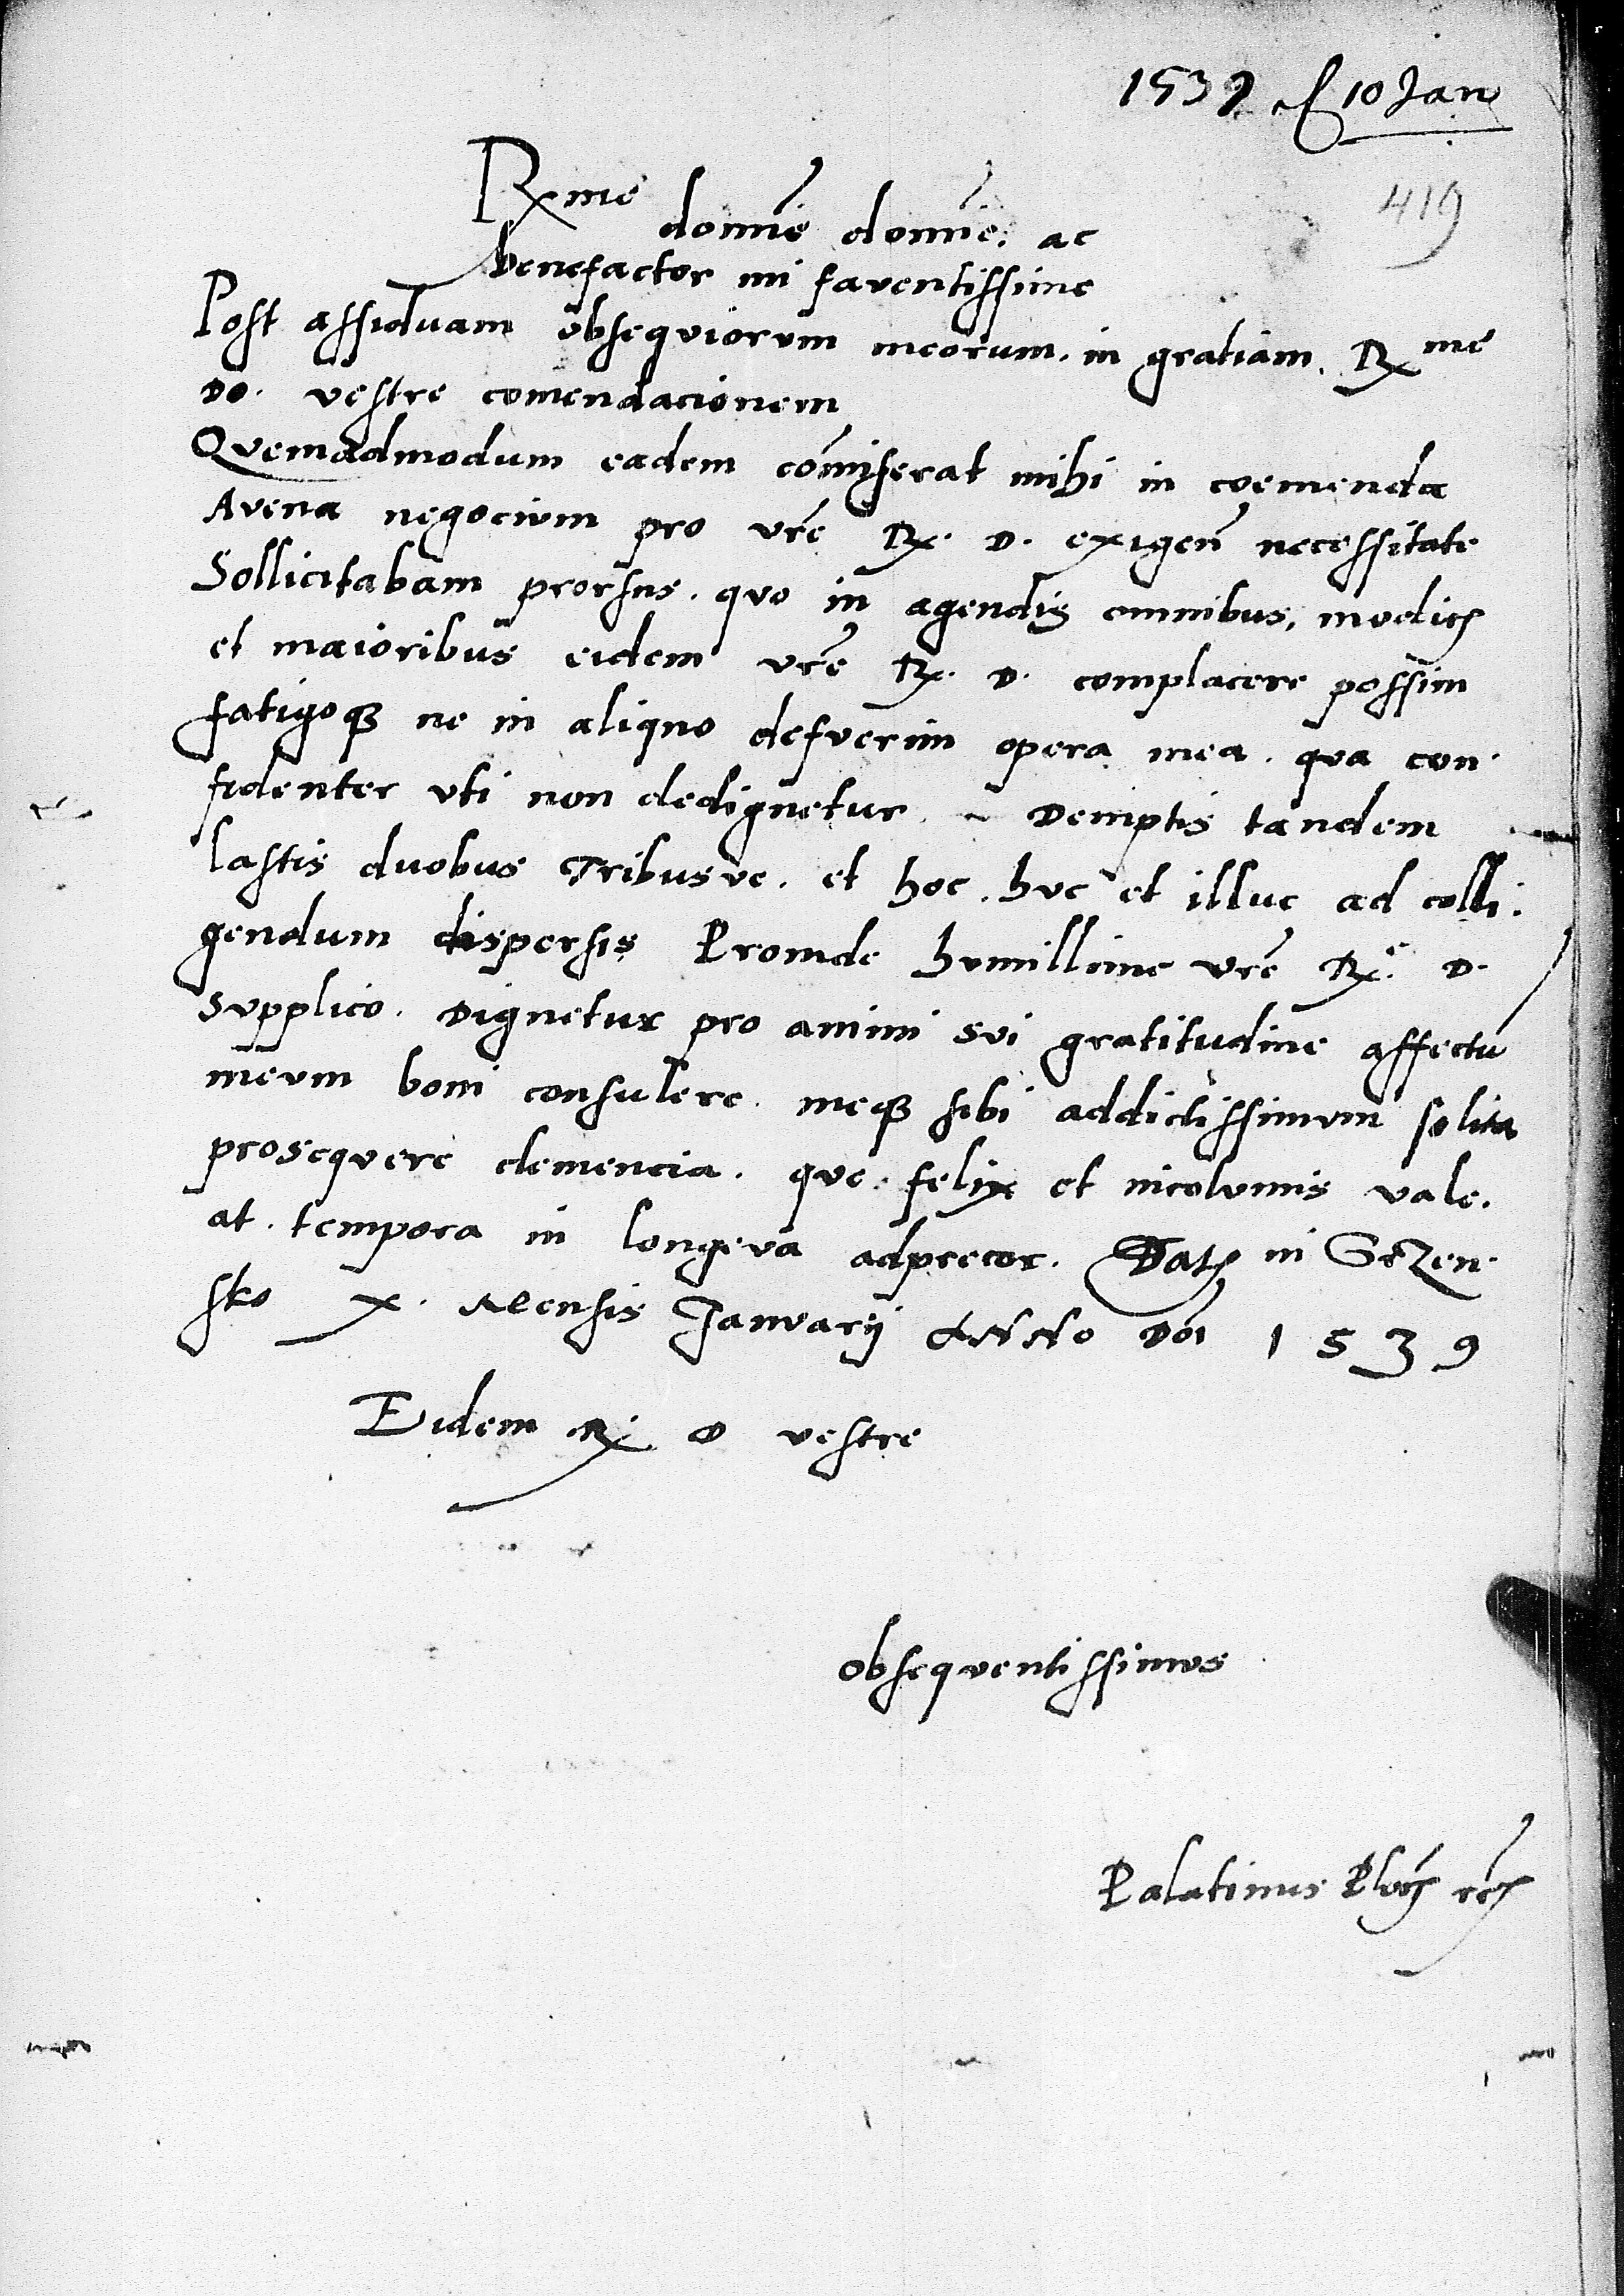 1539 10 Jan
419
Rxme
domne domne. ac
benefactor mi faventissime
Post assiduam obsequiorum meorum. in gratiam. Rxme
Do. vestre comendacionem
Quemadmodum eadem comiserat mihi in coemenda
Avena negocium pro vre Rx. D. exigen necessitate
Sollicitabam prorsus. quo in agendis omnibus, modicis
et maioribus eidem vre Rx. D. complacere possim
fatigoque ne in aliquo defuerim opera mea. qua con
fidenter uti non dedignetur. Demptis tandem
lastis duobus Tribusve. et hoc. huc et illuc ad colli.
gendum dispersis Proinde humillime vre Rxe. D.
supplico. Dignetur pro animi sui gratitudine affectu
meum boni consulere. meque sibi addictissimum solita
prosequere clemencia. que felix et incolumis vale.
at. tempora in longeva adprecor. Dat in
sko x. Mensis Januarij Anno Doi 1539
Eidem Rx D vestre
obsequentissimus
Palatinus Ploc